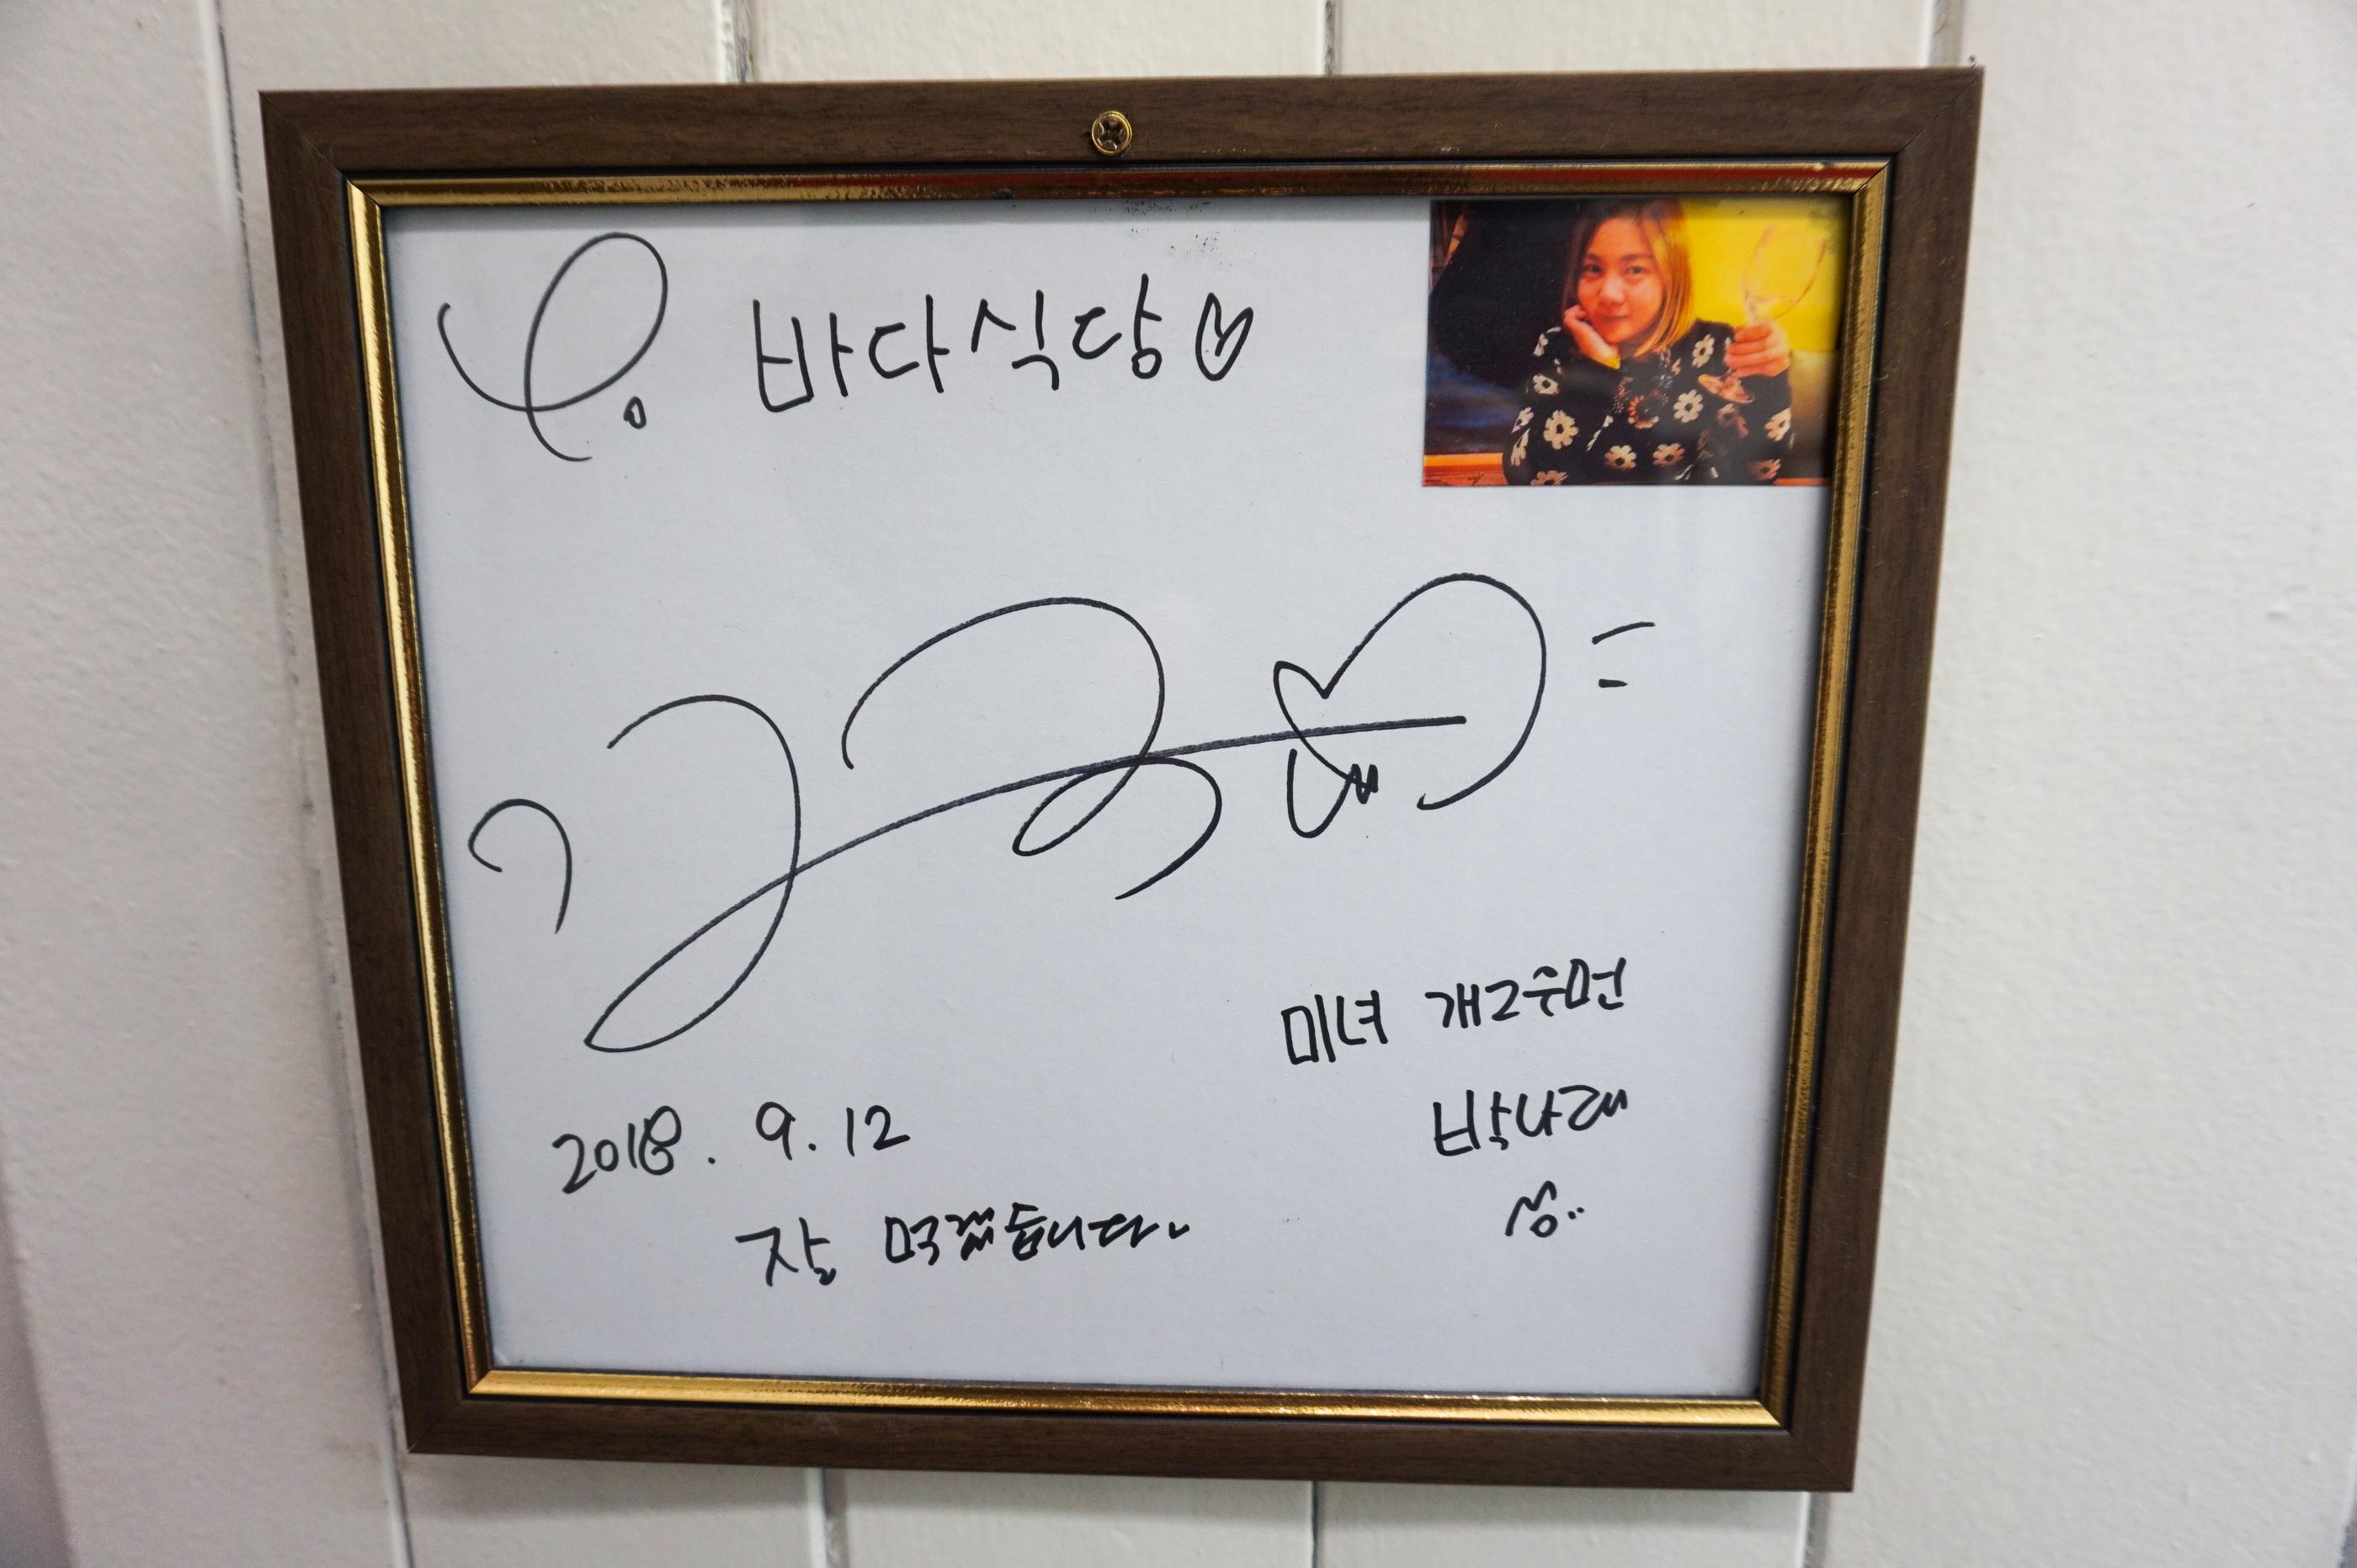 To. 바다식당♡
2018. 9.12
미녀 개그우먼
박나래
잘 먹겠습니다.